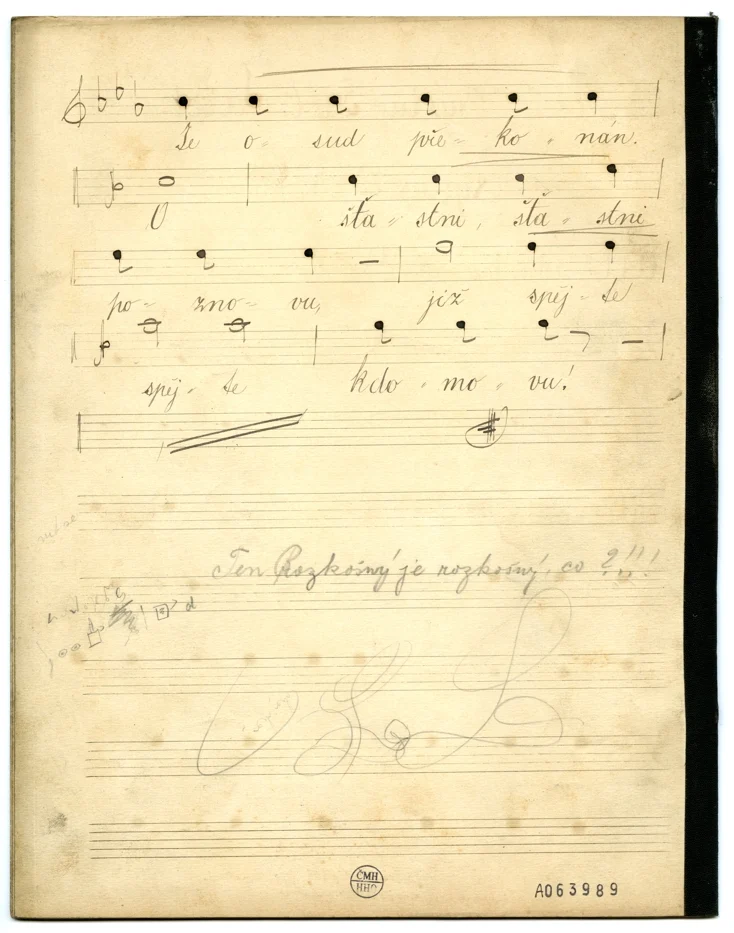 Že o- sud pře- ko - nán.
O šťa - stni, šťa - stni
po- zno- vu, již spěj - te
spěj - te kdo - mo - vu!
Ten Rozkošný je rozkošný, co ?!!!
d
ČMH
HHO
A063989